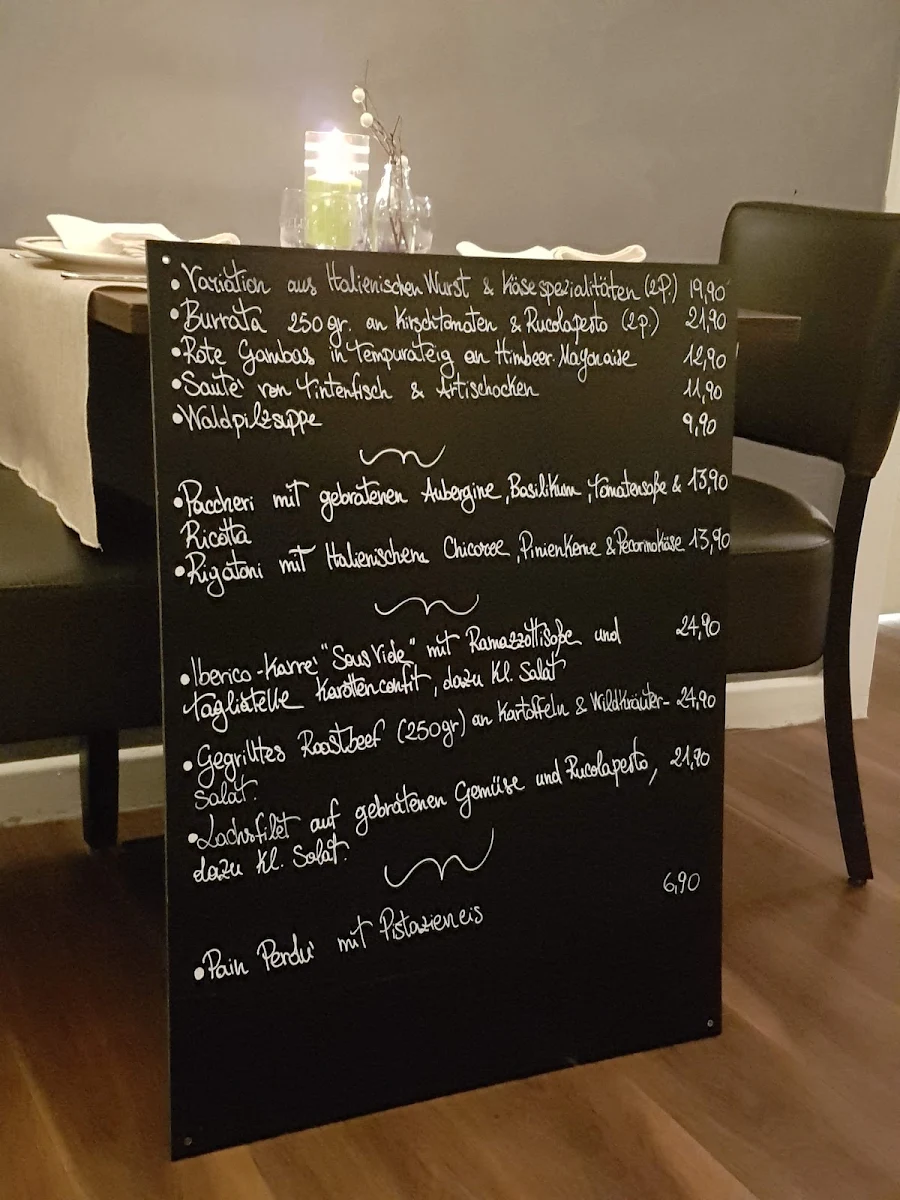 • Variation aus Italienischen Wurst & Käsespezialitäten (2P.) 19,90
• Burrata 250gr. an Kirschtomaten & Rucolapesto (2p.) 21,90
• Rote Gambas in Tempurateig an Himbeer-Mayonaise 12,90
• Sautè von Tintenfisch & Artischocken 11,90
• Waldpilzsuppe 9,90
• Paccheri mit gebratenen Aubergine, Basilikum, Tomatensoße & 13,90
Ricotta
• Rigatoni mit Italienischem Chicoree, Pinienkerne & Pecorinokäse 13,90
• Iberico-Karrè "Sous Vide" mit Ramazzottisoße und 24,90
Tagliatelle Karottenconfit, dazu Kl. Salat
• Gegrilltes Roastbeef (250gr) an Kartoffeln & Wildkräuter- 24,90
Salat.
• Lachsfilet auf gebratenen Gemüse und Rucolapesto, 21,90
dazu Kl. Salat.
• Pain Perdù mit Pistazieneis 6,90